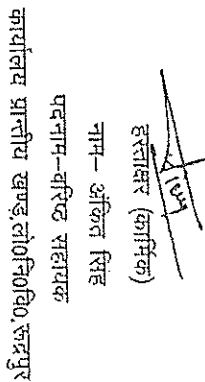 हस्ताक्षर (कार्मिक)
नाम– अंकित सिंह
पदनाम–वरिष्ठ सहायक
कार्यालय प्रान्तीय खण्ड,लो0नि0वि0,रूद्रपुर